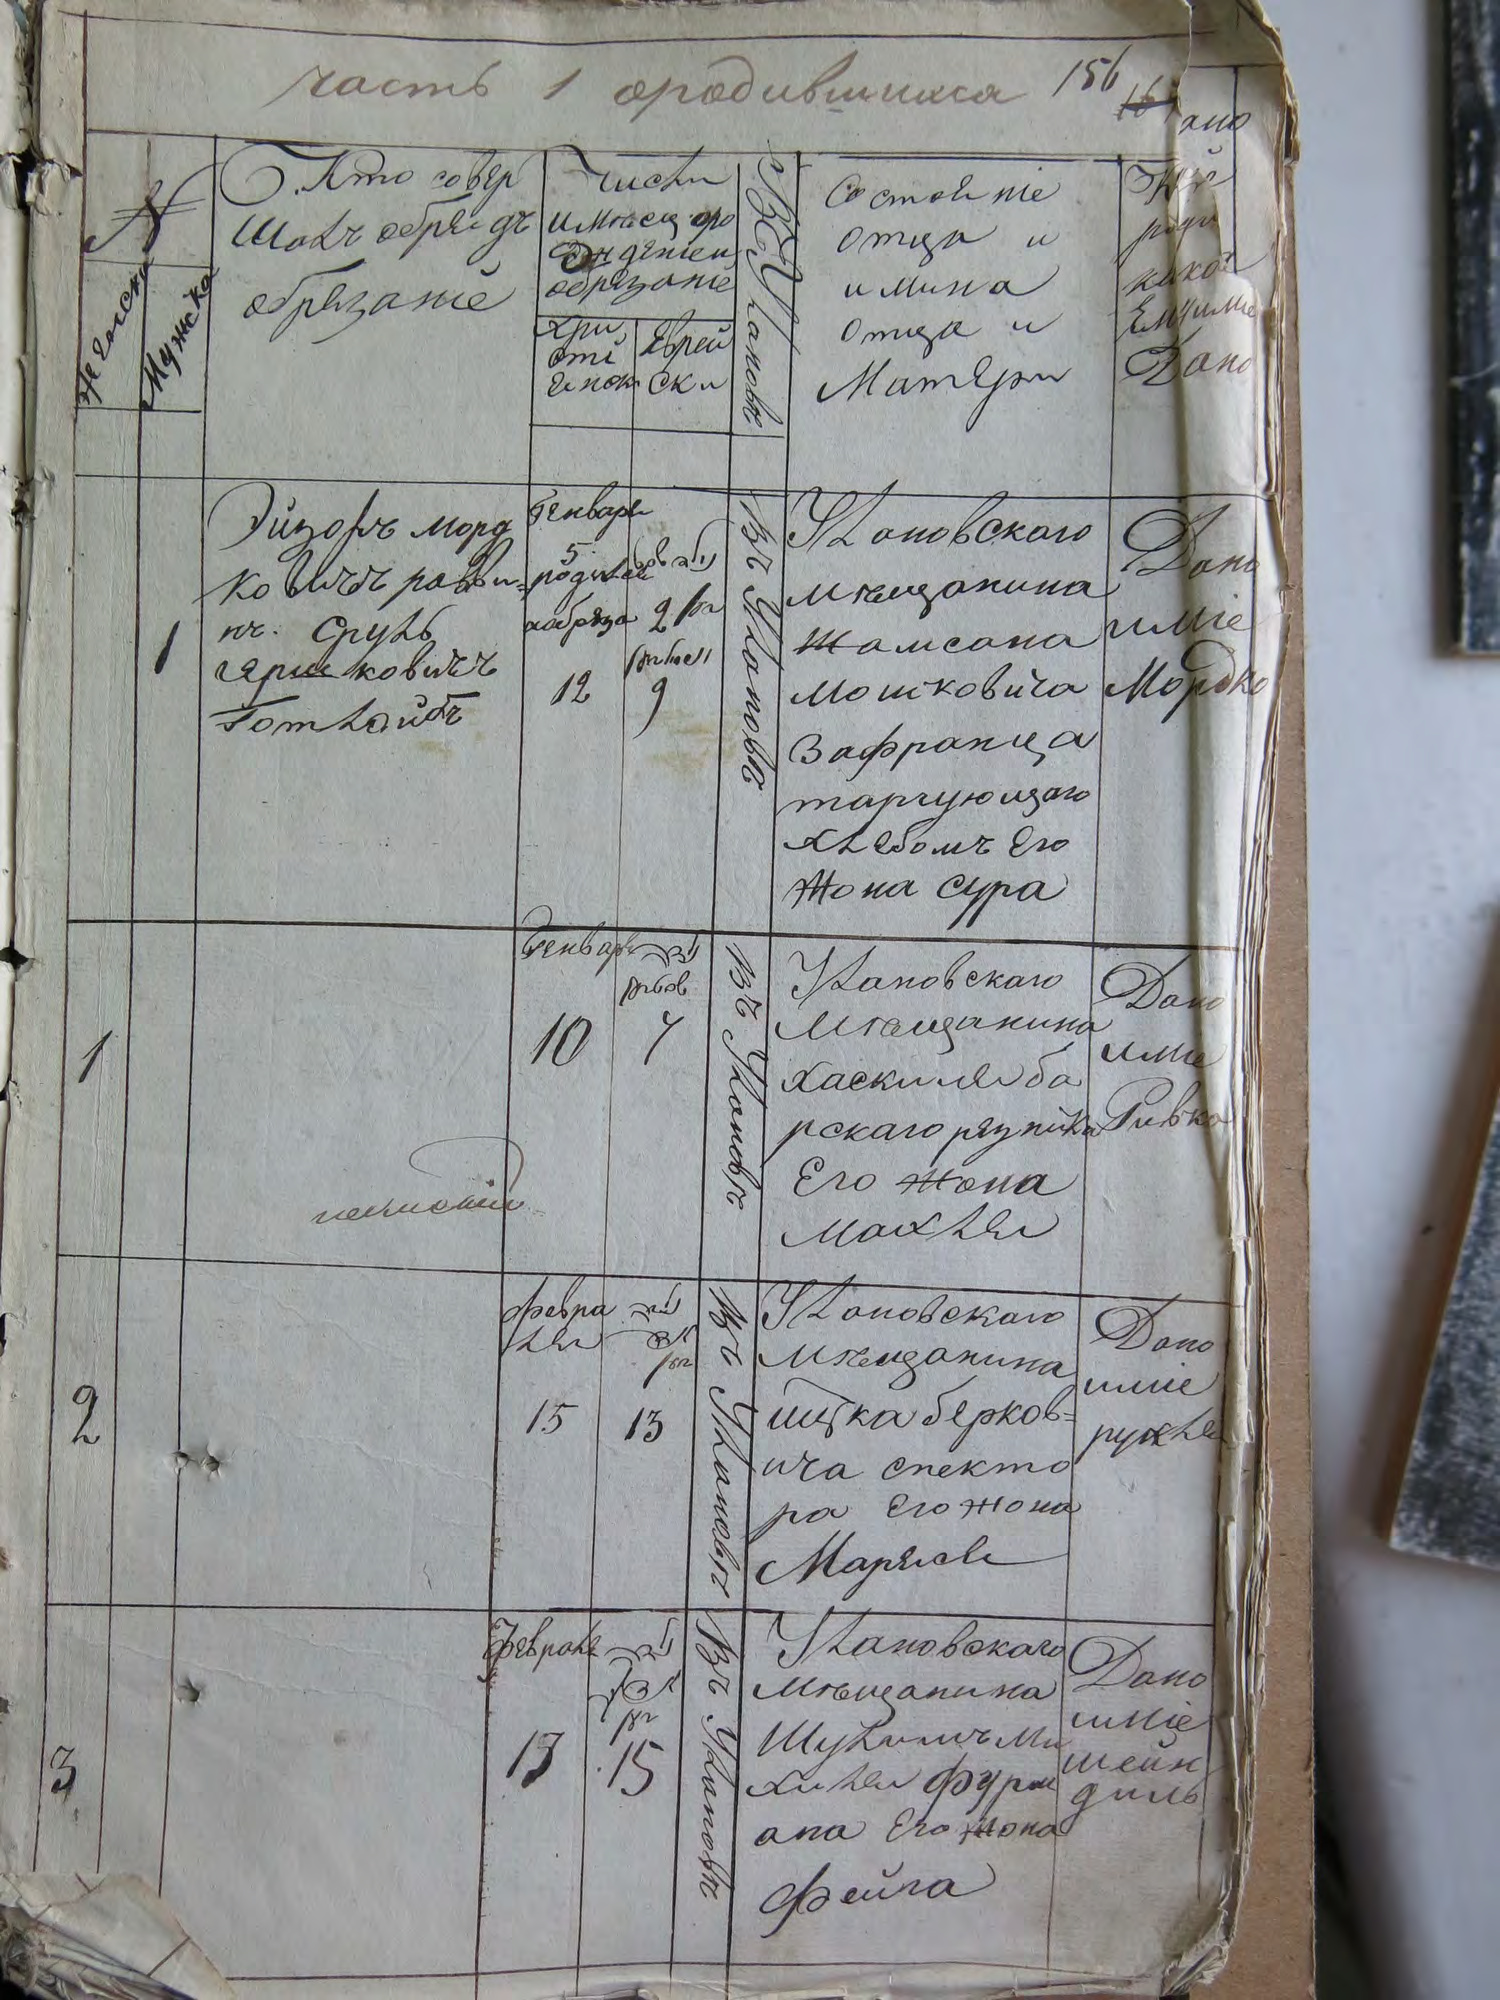 часть 1 ородившихся 156
16
N
Женски
Мужска
Кто совер
шалъ обрядъ
обрезание
Числи
и мъсец оро
ждение и
обрезание
Хри
сті
янск
Еврей
ски
Состояние
отца и
имина
отца и
Матери
Кто
роди
какое
Ему имие
Дано
1
Эйзоръ морд
ковичъ равви-
нъ. Сруль
гершковичъ
Готлайбъ
Генваря
5
родился
аобреза
12
2
9
Въ Улановъ
Улановскаго
мъщанина
Шамсана
мошковича
Зафранца
таргующаго
хлебомъ его
жона сура
Дано
имие
Мордко
1
Генваря
10
7
Въ Улановъ
Улановскаго
мъщанина
хаскиля ба
рскаго резника
Его жона
махля
Дано
имие
Ривка
2
февра
ля
15
13
Въ Улановъ
Улановскаго
мъщанина
ицка берков-
ича спекто
ра Его жона
Маряся
Дано
имие
рухля
3
Февраля
17
15
Въ Улановъ
Улановскаго
мъщанина
Шулимъ Ми
хиля фурм
ана Его жона
фейга
Дано
имие
шейн
диль